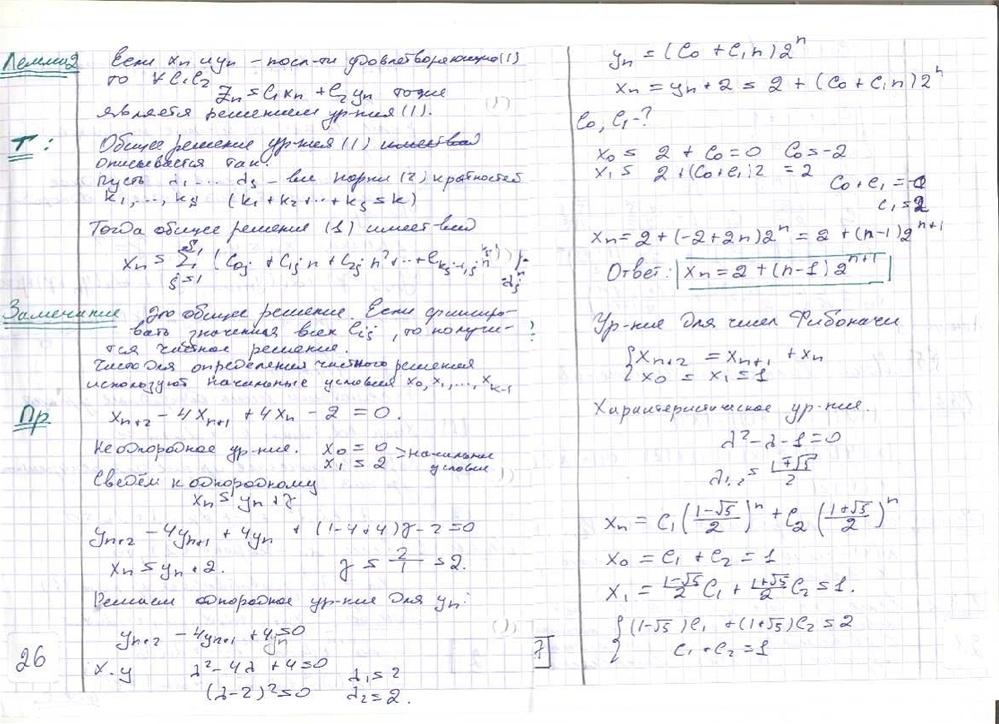 Лемма 2 Если xₙ и yₙ – посл-ти удовлетворяющие (1)
то ∀ C₁C₂
zₙ = C₁xₙ + C₂yₙ тоже
является решением ур-ния (1).
Т: Общее решение ур-ния (1)
описывается так:
Пусть λ₁ ... λₛ – все корни (2) кратностей
k₁, ..., kₛ (k₁ + k₂ + ... + kₛ = k)
Тогда общее решение (1) имеет вид
xₙ = Σ_{j=1}^{s} (C₀ⱼ + C₁ⱼ n + C₂ⱼ n² + ... + C_{kⱼ-1,j} n^{kⱼ-1}) λⱼⁿ
Замечание Это общее решение. Если фиксиро-
вать значения всех Cᵢⱼ, то получи-
тся частное решение.
Часто для определения частного решения
используют начальные условия x₀, x₁, ..., x_{k-1}
Пр. xₙ₊₂ - 4xₙ₊₁ + 4xₙ - 2 = 0.
Неоднородное ур-ние. x₀ = 0 > начальные
x₁ = 2 условия
Сведём к однородному
xₙ = yₙ + z
yₙ₊₂ - 4yₙ₊₁ + 4yₙ + (1-4+4)z - 2 = 0
xₙ = yₙ + 2. z = 2/1 = 2.
Решаем однородное ур-ние для yₙ:
yₙ₊₂ - 4yₙ₊₁ + 4yₙ = 0
Х.у λ² - 4λ + 4 = 0 λ₁ = 2
(λ-2)² = 0 λ₂ = 2.
26
yₙ = (C₀ + C₁n)2ⁿ
xₙ = yₙ + 2 = 2 + (C₀ + C₁n)2ⁿ
C₀, C₁ - ?
x₀ = 2 + C₀ = 0 C₀ = -2
x₁ = 2 + (C₀ + C₁)2 = 2
C₀ + C₁ = 0
C₁ = 2
xₙ = 2 + (-2 + 2n)2ⁿ = 2 + (n-1)2ⁿ⁺¹
Ответ: xₙ = 2 + (n-1)2ⁿ⁺¹
Ур-ние для чисел Фибоначи
{ xₙ₊₂ = xₙ₊₁ + xₙ
x₀ = x₁ = 1
Характеристическое ур-ние.
λ² - λ - 1 = 0
λ₁,₂ = (1∓√5)/2
xₙ = C₁((1-√5)/2)ⁿ + C₂((1+√5)/2)ⁿ
x₀ = C₁ + C₂ = 1
x₁ = (1-√5)/2 C₁ + (1+√5)/2 C₂ = 1.
{ (1-√5)C₁ + (1+√5)C₂ = 2
C₁ + C₂ = 1